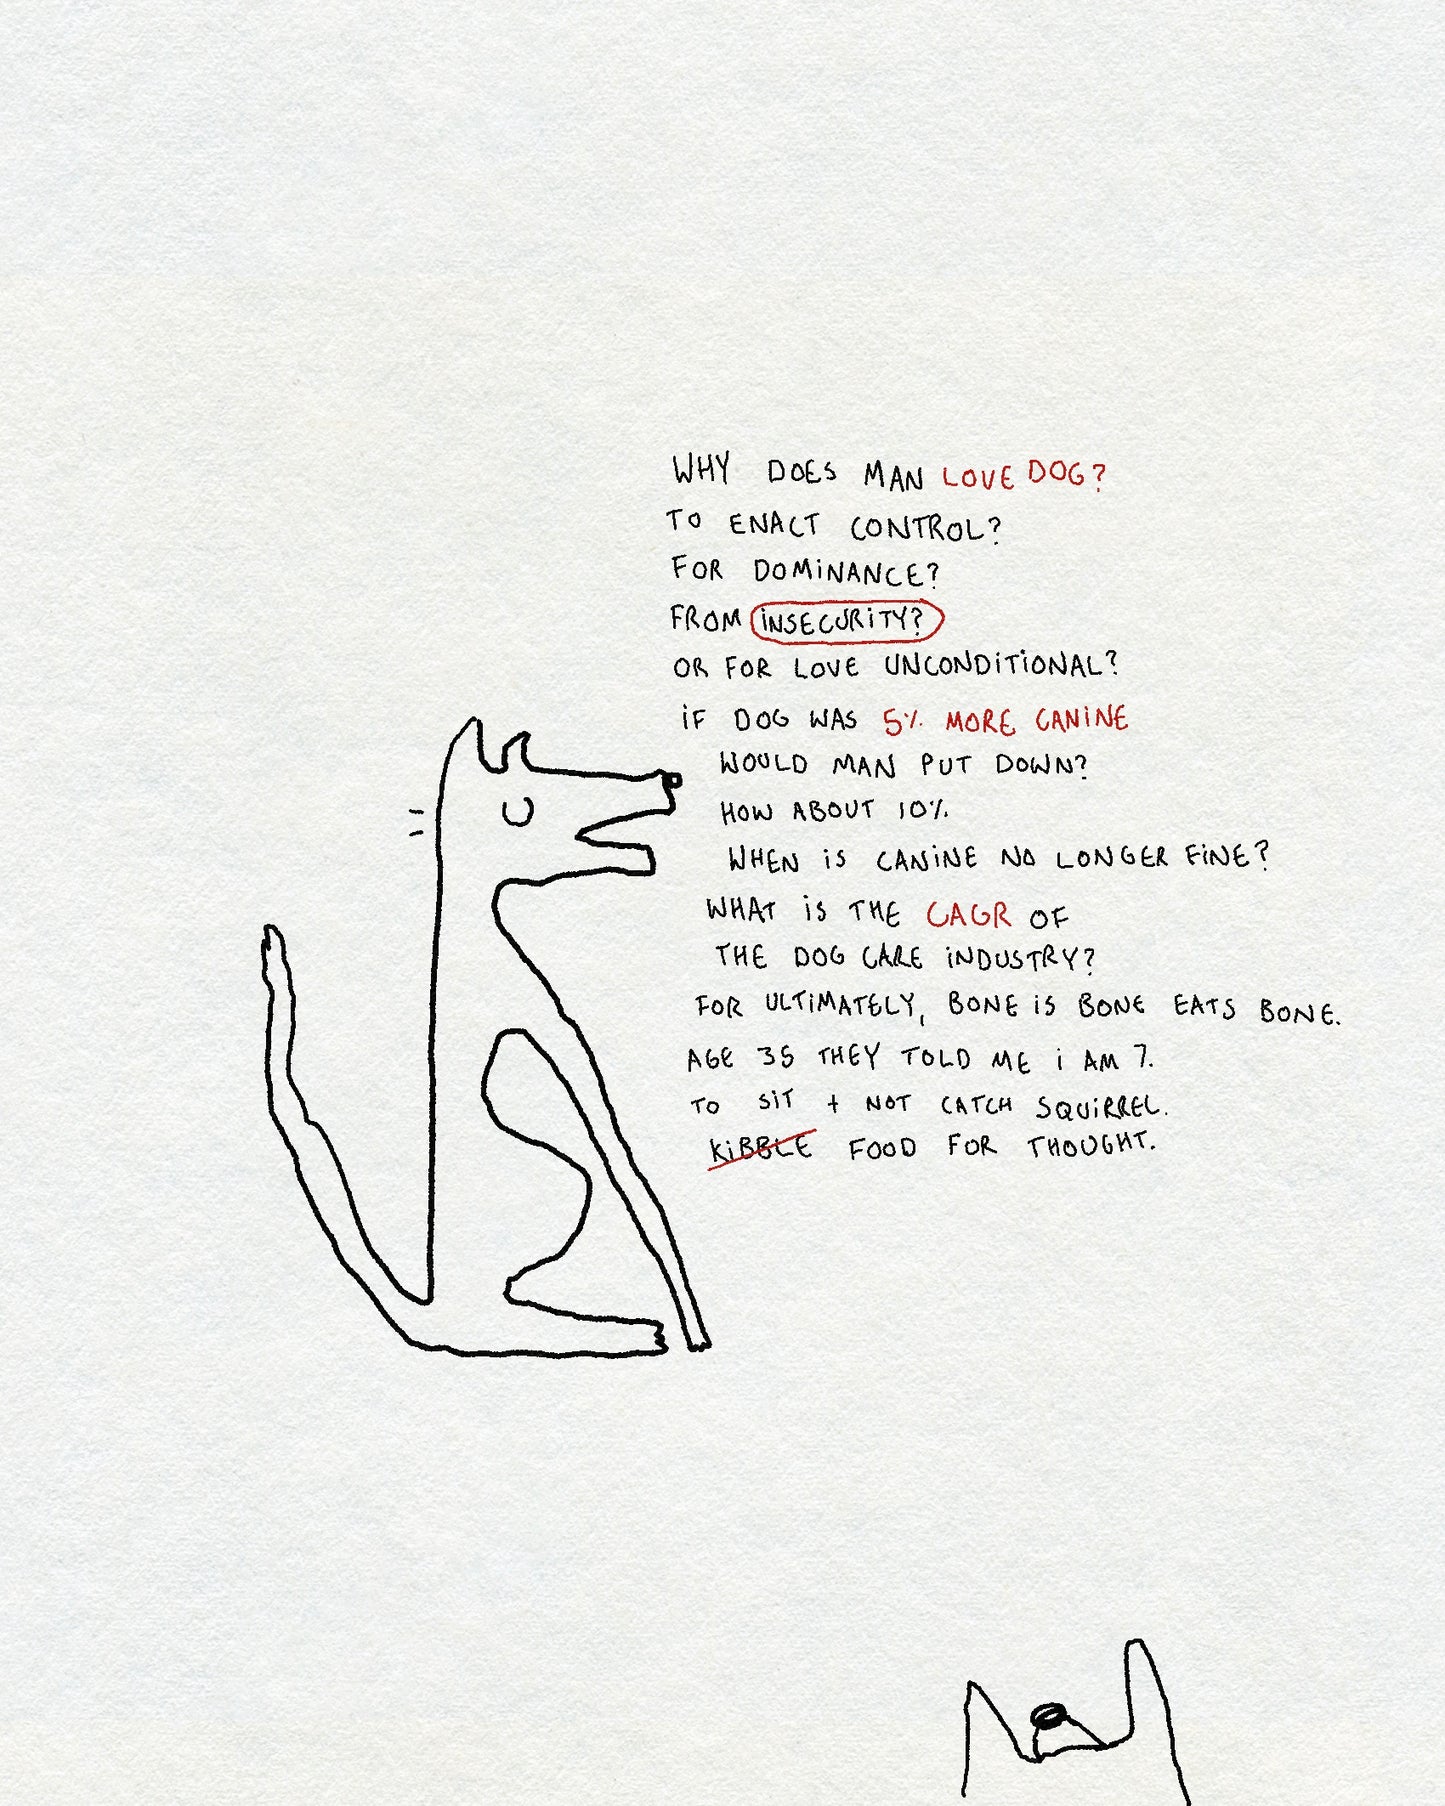 WHY DOES MAN LOVE DOG?
TO ENACT CONTROL?
FOR DOMiNANCE?
FROM iNSECURiTY?
OR FOR LOVE UNCONDiTiONAL?
iF DOG WAS 5% MORE CANiNE
WOULD MAN PUT DOWN?
HOW ABOUT 10%.
WHEN iS CANiNE NO LONGER FiNE?
WHAT iS THE CAGR OF
THE DOG CARE iNDUSTRY?
FOR ULTiMATELY, BONE iS BONE EATS BONE.
AGE 35 THEY TOLD ME i AM 7.
TO SiT + NOT CATCH SQUiRREL.
KiBBLE FOOD FOR THOUGHT.